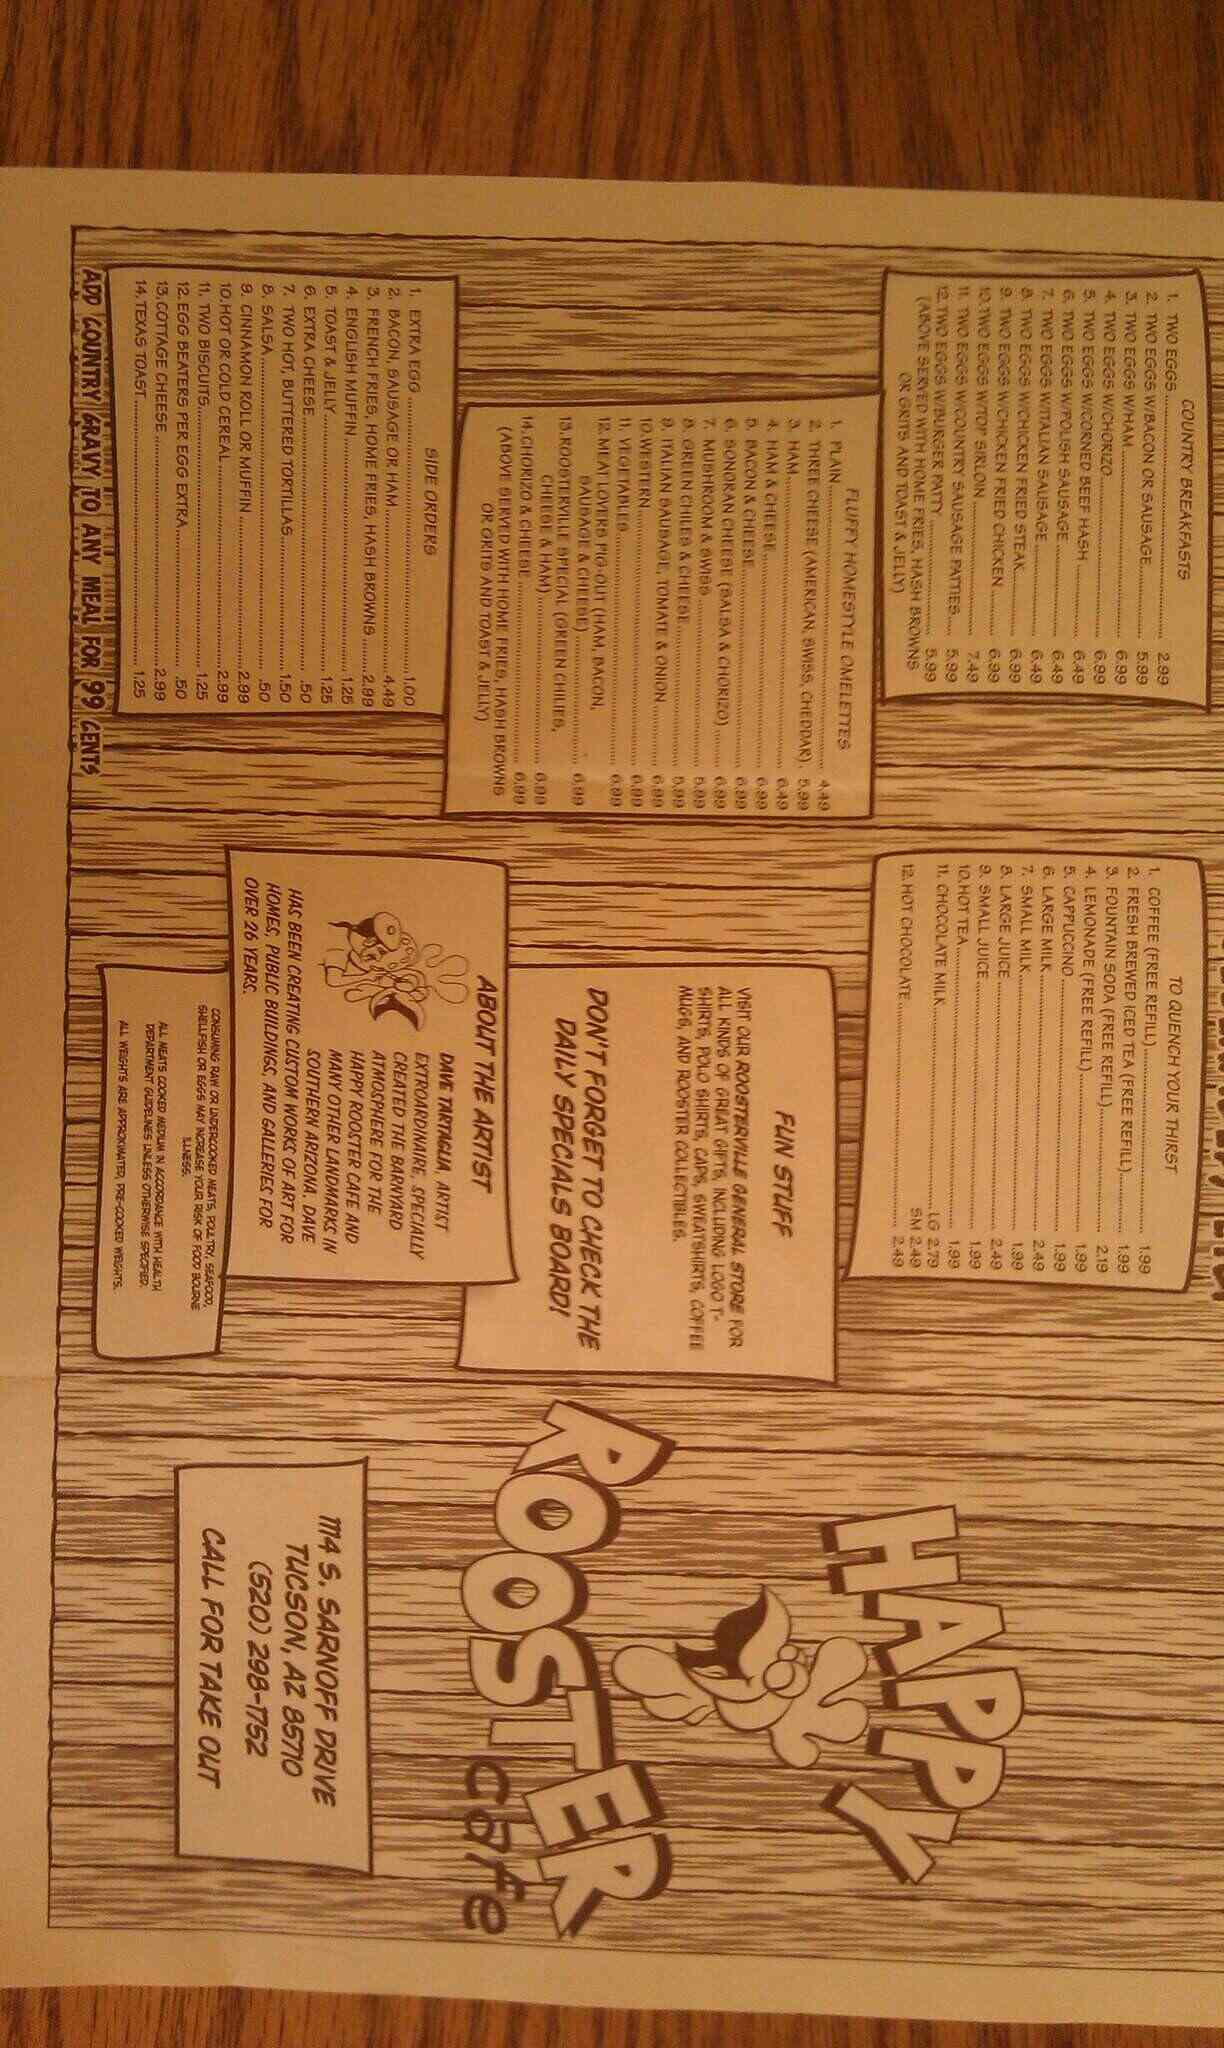 COUNTRY BREAKFASTS
1. TWO EGGS 2.99
2. TWO EGGS W/BACON OR SAUSAGE 5.99
3. TWO EGGS W/HAM 6.99
4. TWO EGGS W/CHORIZO 6.99
5. TWO EGGS W/CORNED BEEF HASH 6.49
6. TWO EGGS W/POLISH SAUSAGE 6.49
7. TWO EGGS W/ITALIAN SAUSAGE 6.49
8. TWO EGGS W/CHICKEN FRIED STEAK 6.99
9. TWO EGGS W/CHICKEN FRIED CHICKEN 6.99
10. TWO EGGS W/TOP SIRLOIN 7.49
11. TWO EGGS W/COUNTRY SAUSAGE PATTIES 5.99
12. TWO EGGS W/BURGER PATTY 5.99
(ABOVE SERVED WITH HOME FRIES, HASH BROWNS
OR GRITS AND TOAST & JELLY)
FLUFFY HOMESTYLE OMELETTES
1. PLAIN 4.49
2. THREE CHEESE (AMERICAN, SWISS, CHEDDAR) 5.99
3. HAM 6.49
4. HAM & CHEESE 6.99
5. BACON & CHEESE 6.99
6. SONORAN CHEESE (SALSA & CHORIZO) 6.99
7. MUSHROOM & SWISS 5.99
8. GREEN CHILES & CHEESE 5.99
9. ITALIAN SAUSAGE, TOMATE & ONION 6.99
10. WESTERN 6.99
11. VEGETABLES 6.99
12. MEAT LOVERS PIG-OUT (HAM, BACON,
SAUSAGE & CHEESE) 6.99
13. ROOSTERVILLE SPECIAL (GREEN CHILIES,
CHEESE & HAM) 6.99
14. CHORIZO & CHEESE 6.99
(ABOVE SERVED WITH HOME FRIES, HASH BROWNS
OR GRITS AND TOAST & JELLY)
SIDE ORDERS
1. EXTRA EGG 1.00
2. BACON, SAUSAGE OR HAM 4.49
3. FRENCH FRIES, HOME FRIES, HASH BROWNS 2.99
4. ENGLISH MUFFIN 1.25
5. TOAST & JELLY 1.25
6. EXTRA CHEESE .50
7. TWO HOT, BUTTERED TORTILLAS 1.50
8. SALSA .50
9. CINNAMON ROLL OR MUFFIN 2.99
10. HOT OR COLD CEREAL 2.99
11. TWO BISCUITS 1.25
12. EGG BEATERS PER EGG EXTRA .50
13. COTTAGE CHEESE 2.99
14. TEXAS TOAST 1.25
ADD COUNTRY GRAVY TO ANY MEAL FOR 99 CENTS
TO QUENCH YOUR THIRST
1. COFFEE (FREE REFILL) 1.99
2. FRESH BREWED ICED TEA (FREE REFILL) 1.99
3. FOUNTAIN SODA (FREE REFILL) 2.19
4. LEMONADE (FREE REFILL) 1.99
5. CAPPUCCINO 1.99
6. LARGE MILK 2.49
7. SMALL MILK 1.99
8. LARGE JUICE 2.49
9. SMALL JUICE 1.99
10. HOT TEA 1.99
11. CHOCOLATE MILK LG 2.79
SM 2.49
12. HOT CHOCOLATE 2.49
FUN STUFF
VISIT OUR ROOSTERVILLE GENERAL STORE FOR
ALL KINDS OF GREAT GIFTS, INCLUDING LOGO T-
SHIRTS, POLO SHIRTS, CAPS, SWEATSHIRTS, COFFEE
MUGS, AND ROOSTER COLLECTIBLES.
DON'T FORGET TO CHECK THE
DAILY SPECIALS BOARD!
ABOUT THE ARTIST
DAVE TARTAGLIA, ARTIST
EXTROARDINAIRE, SPECIALLY
CREATED THE BARNYARD
ATMOSPHERE FOR THE
HAPPY ROOSTER CAFE AND
MANY OTHER LANDMARKS IN
SOUTHERN ARIZONA. DAVE
HAS BEEN CREATING CUSTOM WORKS OF ART FOR
HOMES, PUBLIC BUILDINGS, AND GALERIES FOR
OVER 26 YEARS.
CONSUMING RAW OR UNDERCOOKED MEATS, POULTRY, SEAFOOD,
SHELLFISH OR EGGS MAY INCREASE YOUR RISK OF FOOD BOURNE
ILLNESS.
ALL MEATS COOKED MEDIUM IN ACCORDANCE WITH HEALTH
DEPARTMENT GUIDELINES UNLESS OTHERWISE SPECIFIED.
ALL WEIGHTS ARE APPROXIMATED, PRE-COOKED WEIGHTS.
HAPPY
ROOSTER
cafe
1114 S. SARNOFF DRIVE
TUCSON, AZ 85710
(520) 298-1752
CALL FOR TAKE OUT